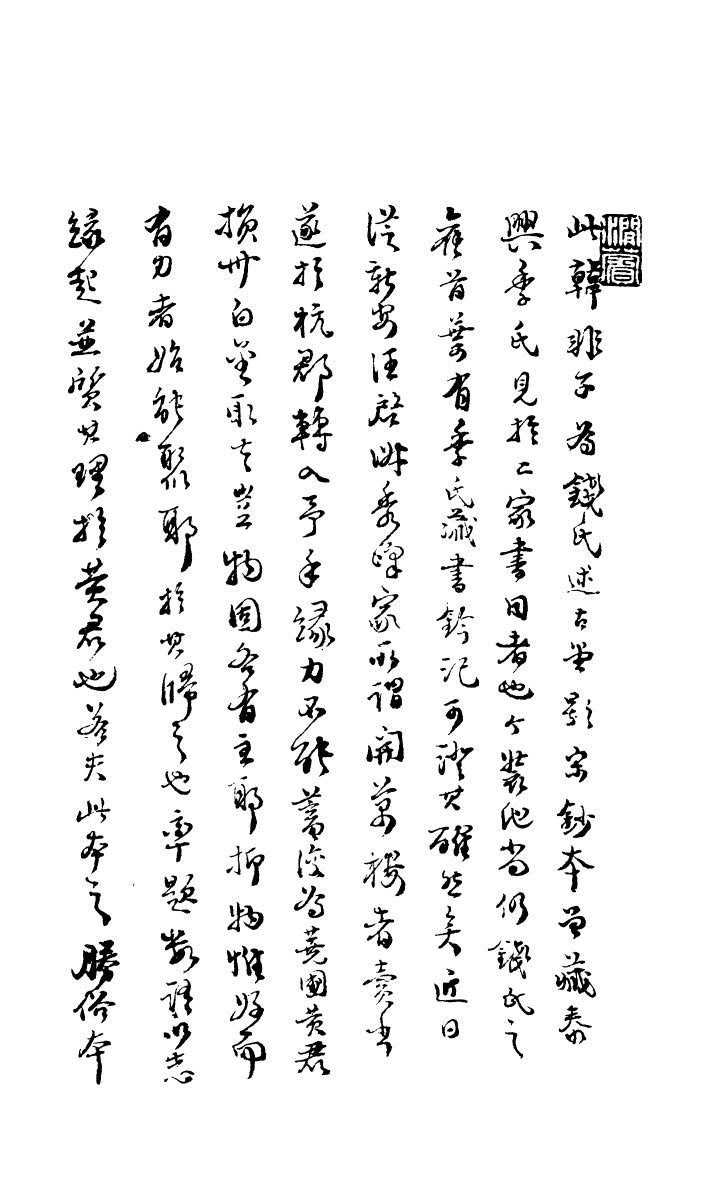 澗薲
此韓非子為錢氏述古堂影宋鈔本曾藏泰
興季氏見於二家書目者也今裝池尚仍錢氏之
舊首葉有季氏藏書鈐記可證其確然矣近日
從新安汪啟淑秀峰家所謂開萬樓者賣出
遂於杭郡轉入予手緣力不能蓄復為蕘圃黃君
損卅白金取去豈物固各有主耶抑物惟好而
有力者始能聚耶於其歸之也率題數語以志
緣起並質其理於黃君也若夫此本之勝俗本